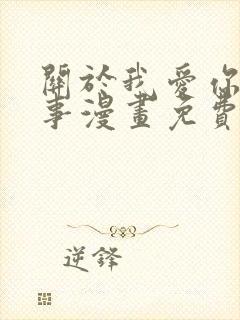 關於我愛你
事漫畫免費
逆鋒